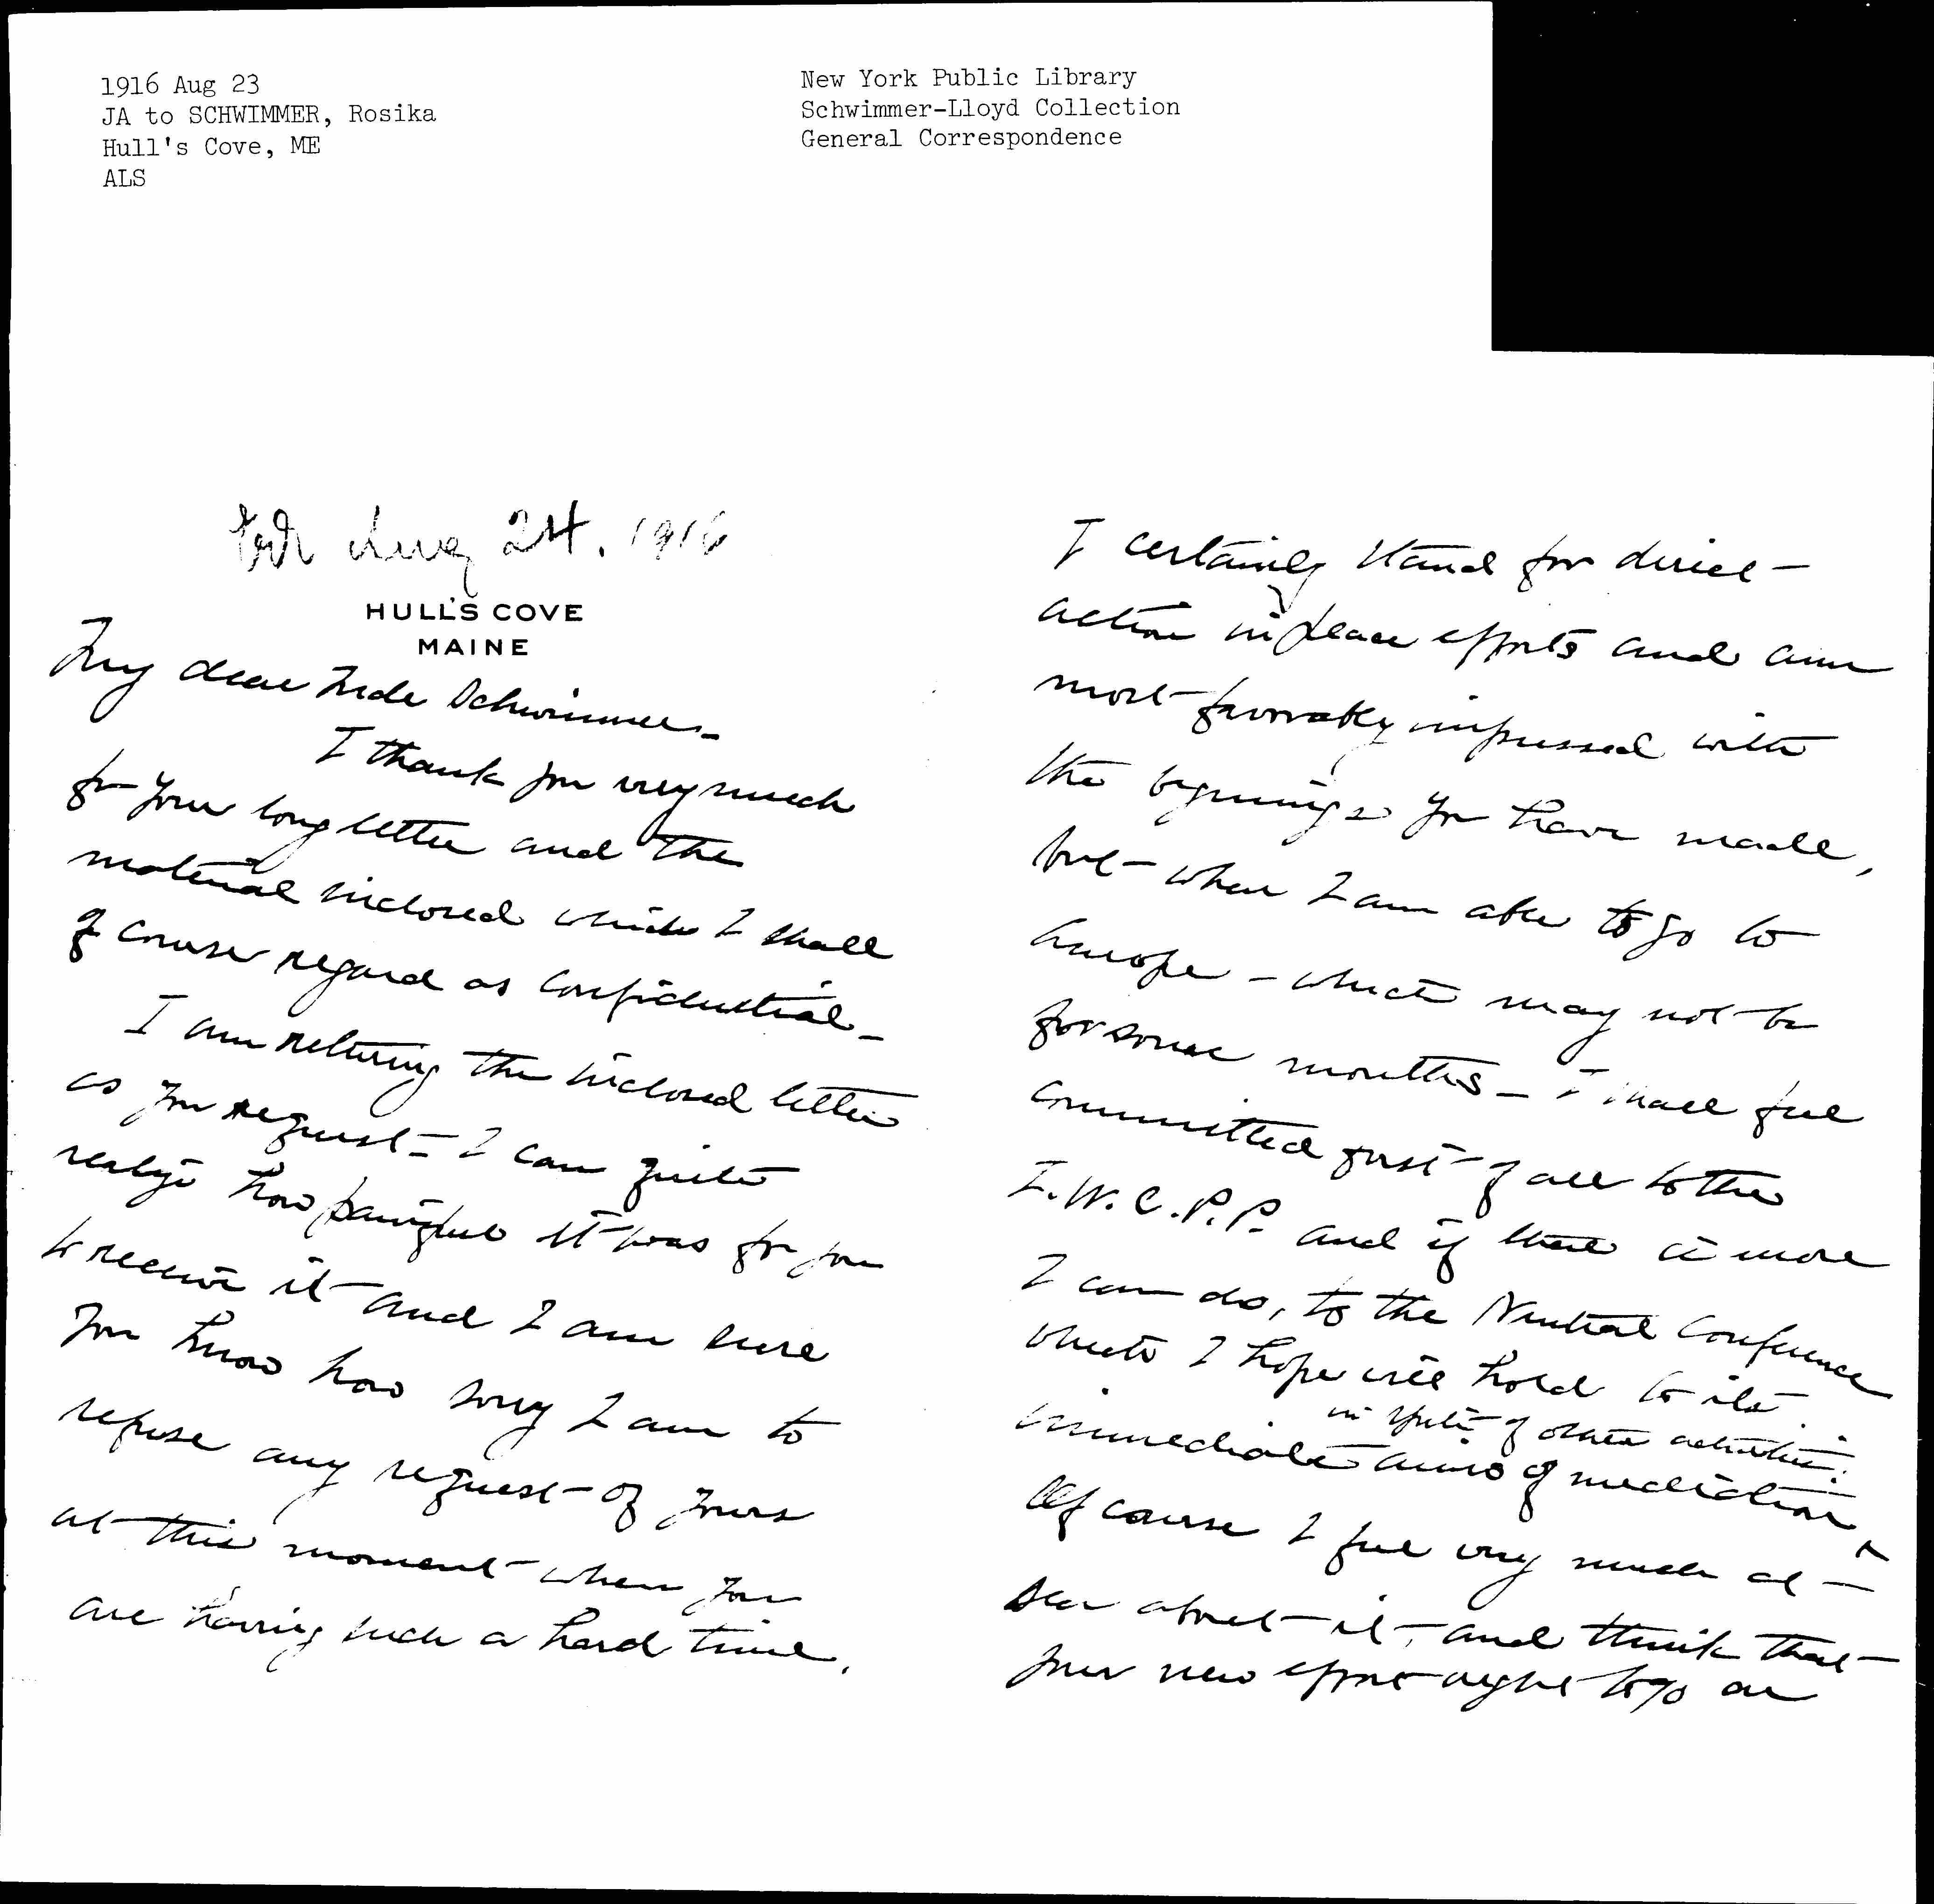 1916 Aug 23
JA to SCHWIMMER, Rosika
Hull's Cove, ME
ALS
New York Public Library
Schwimmer-Lloyd Collection
General Correspondence
Aug 24. 1916
HULL'S COVE
MAINE
My dear Mde Schwimmer—
I thank you very much
for your long letter and the
material inclosed which I shall
of course regard as confidential—
I am returing the inclosed letter
as you request — I can quite
realize how painful it was for you
to receive it and I am sure
you know how sorry I am to
refuse any request of yours
at this moment when you
are having such a hard time.
I certainly stand for direct
action in peace efforts and am
most favorably impressed with
the beginnings you have made,
but when I am able to go to
Europe — which may not be
for some months — I shall feel
committed first of all to the
I.W.C.P.P. and if there is more
I can do, to the Neutral Conference
which I hope will hold to its
in spite of other activities.
immediate aims of mediation ^
Of course I feel very much at
sea about it, and think that
your new effort ought to go on